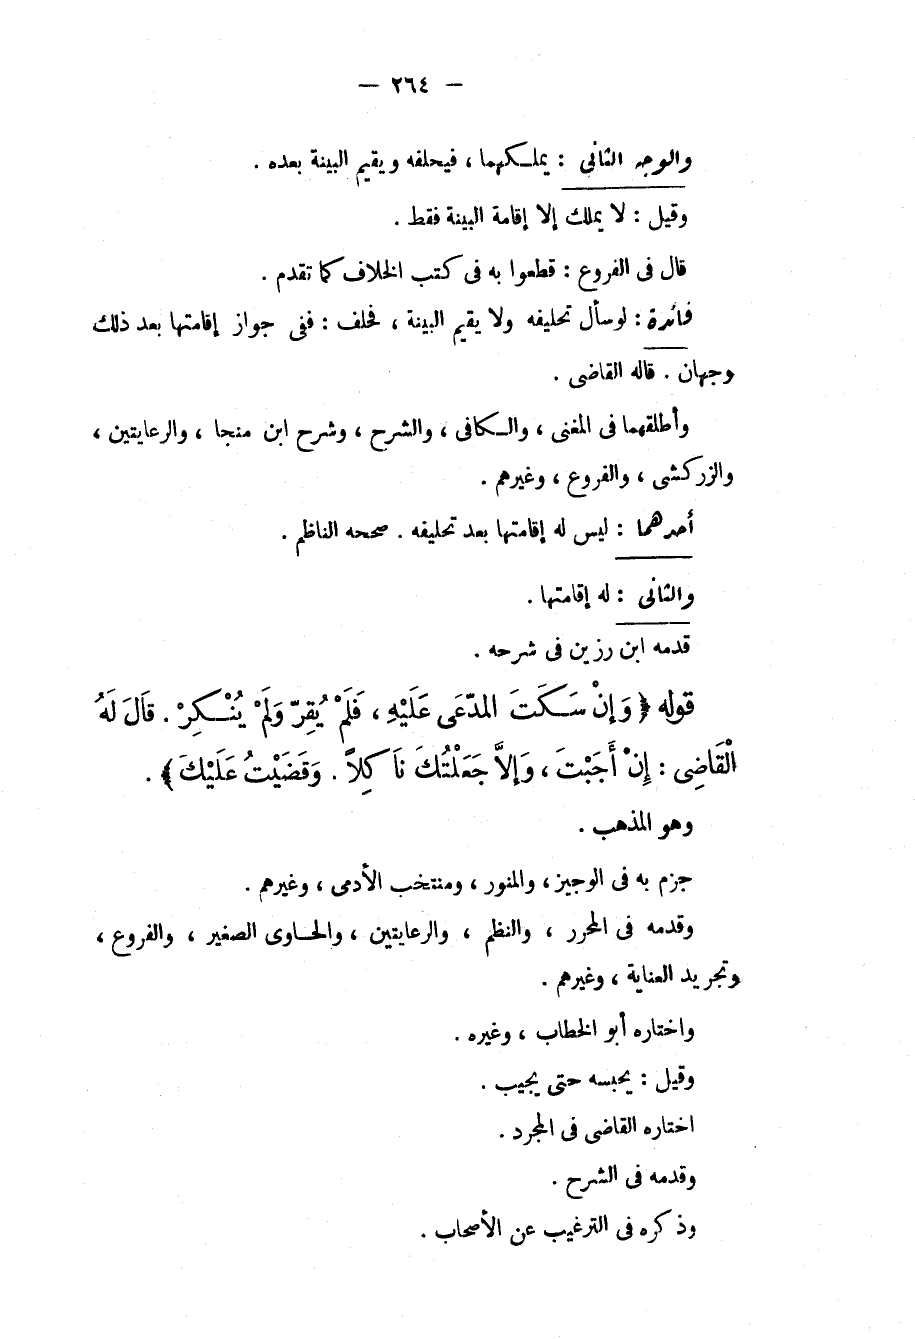 — ٢٦٤ —
والوجه الثانى : يملكهما ، فيحلفه ويقيم البينة بعده .
وقيل : لا يملك إلا إقامة البينة فقط .
قال فى الفروع : قطعوا به فى كتب الخلاف كما تقدم .
فائدة : لو سأل تحليفه ولا يقيم البينة ، فحلف : ففى جواز إقامتها بعد ذلك
وجهان . قاله القاضى .
وأطلقهما فى المغنى ، والكافى ، والشرح ، وشرح ابن منجا ، والرعايتين ،
والزركشى ، والفروع ، وغيرهم .
أحدهما : ليس له إقامتها بعد تحليفه . صححه الناظم .
والثانى : له إقامتها .
قدمه ابن رزين فى شرحه .
قوله ﴿ وَإِنْ سَكَتَ المدّعَى عَلَيْهِ ، فَلَمْ يُقِرّ وَلَمْ يُنْكِرْ . قاَلَ لَهُ
الْقَاضِى : إِنْ أَجَبْتَ ، وَإلاَّ جَعَلْتُكَ نَاكِلاً . وَقَضَيْتُ عَلَيْكَ ﴾ .
وهو المذهب .
جزم به فى الوجيز ، والمنور ، ومنتخب الأدمى ، وغيرهم .
وقدمه فى المحرر ، والنظم ، والرعايتين ، والحاوى الصغير ، والفروع ،
وتجريد العناية ، وغيرهم .
واختاره أبو الخطاب ، وغيره .
وقيل : يحبسه حتى يجيب .
اختاره القاضى فى المجرد .
وقدمه فى الشرح .
وذكره فى الترغيب عن الأصحاب .